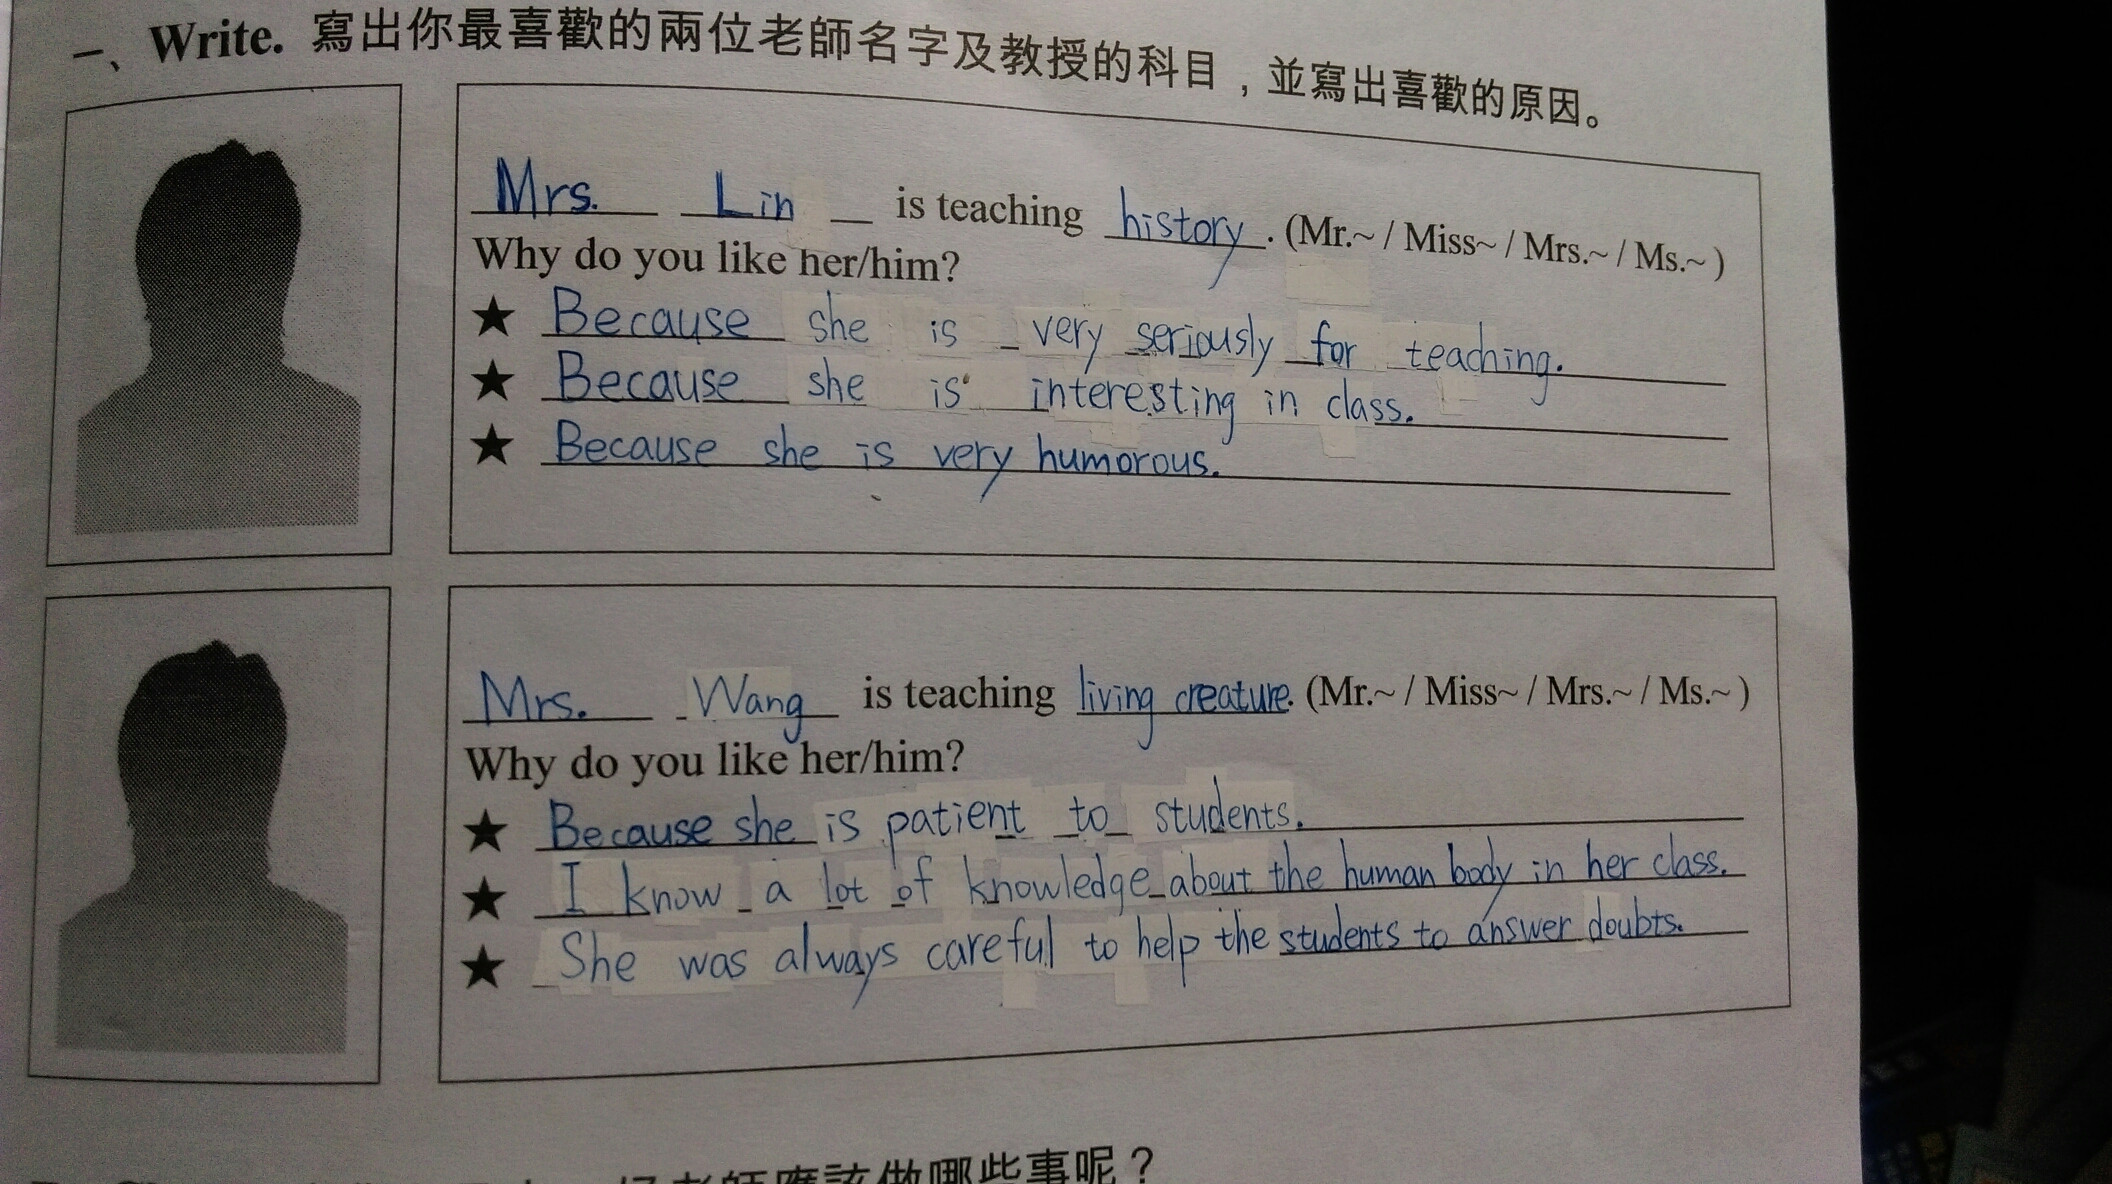 一、Write. 寫出你最喜歡的兩位老師名字及教授的科目，並寫出喜歡的原因。
Mrs. Lin is teaching history. (Mr.~ / Miss~ / Mrs.~ / Ms.~ )
Why do you like her/him?
★ Because she is very seriously for teaching.
★ Because she is interesting in class.
★ Because she is very humorous.
Mrs. Wang is teaching living creature. (Mr.~ / Miss~ / Mrs.~ / Ms.~ )
Why do you like her/him?
★ Because she is patient to students.
★ I know a lot of knowledge about the human body in her class.
★ She was always careful to help the students to answer doubts.
好老師應該做哪些事呢？